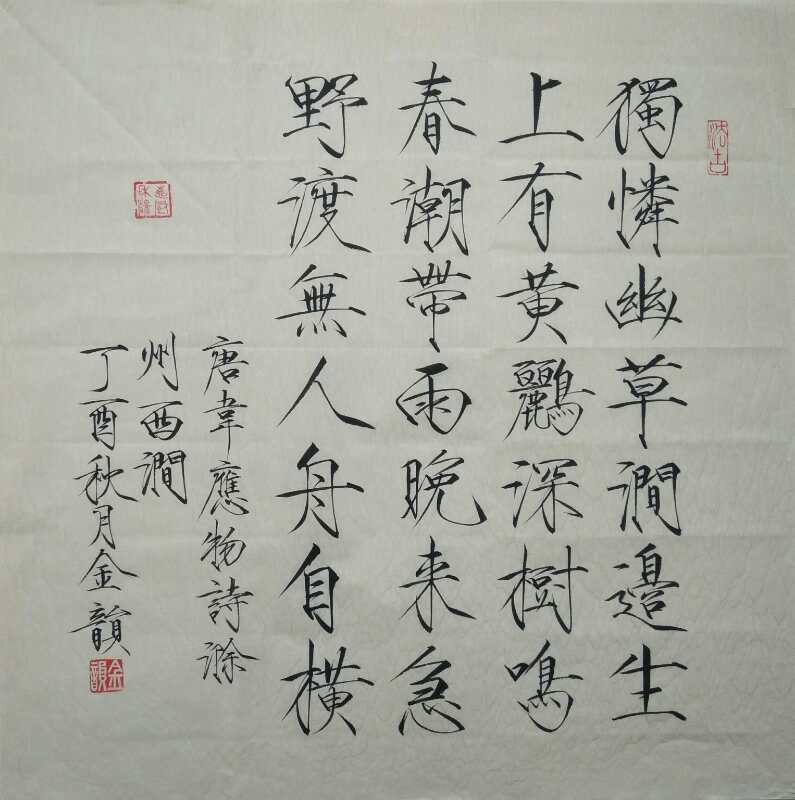 獨憐幽草澗邊生
上有黃鸝深樹鳴
春潮帶雨晚来急
野渡無人舟自橫
唐韋應物詩滁
州西澗
丁酉秋月金韻
金韻